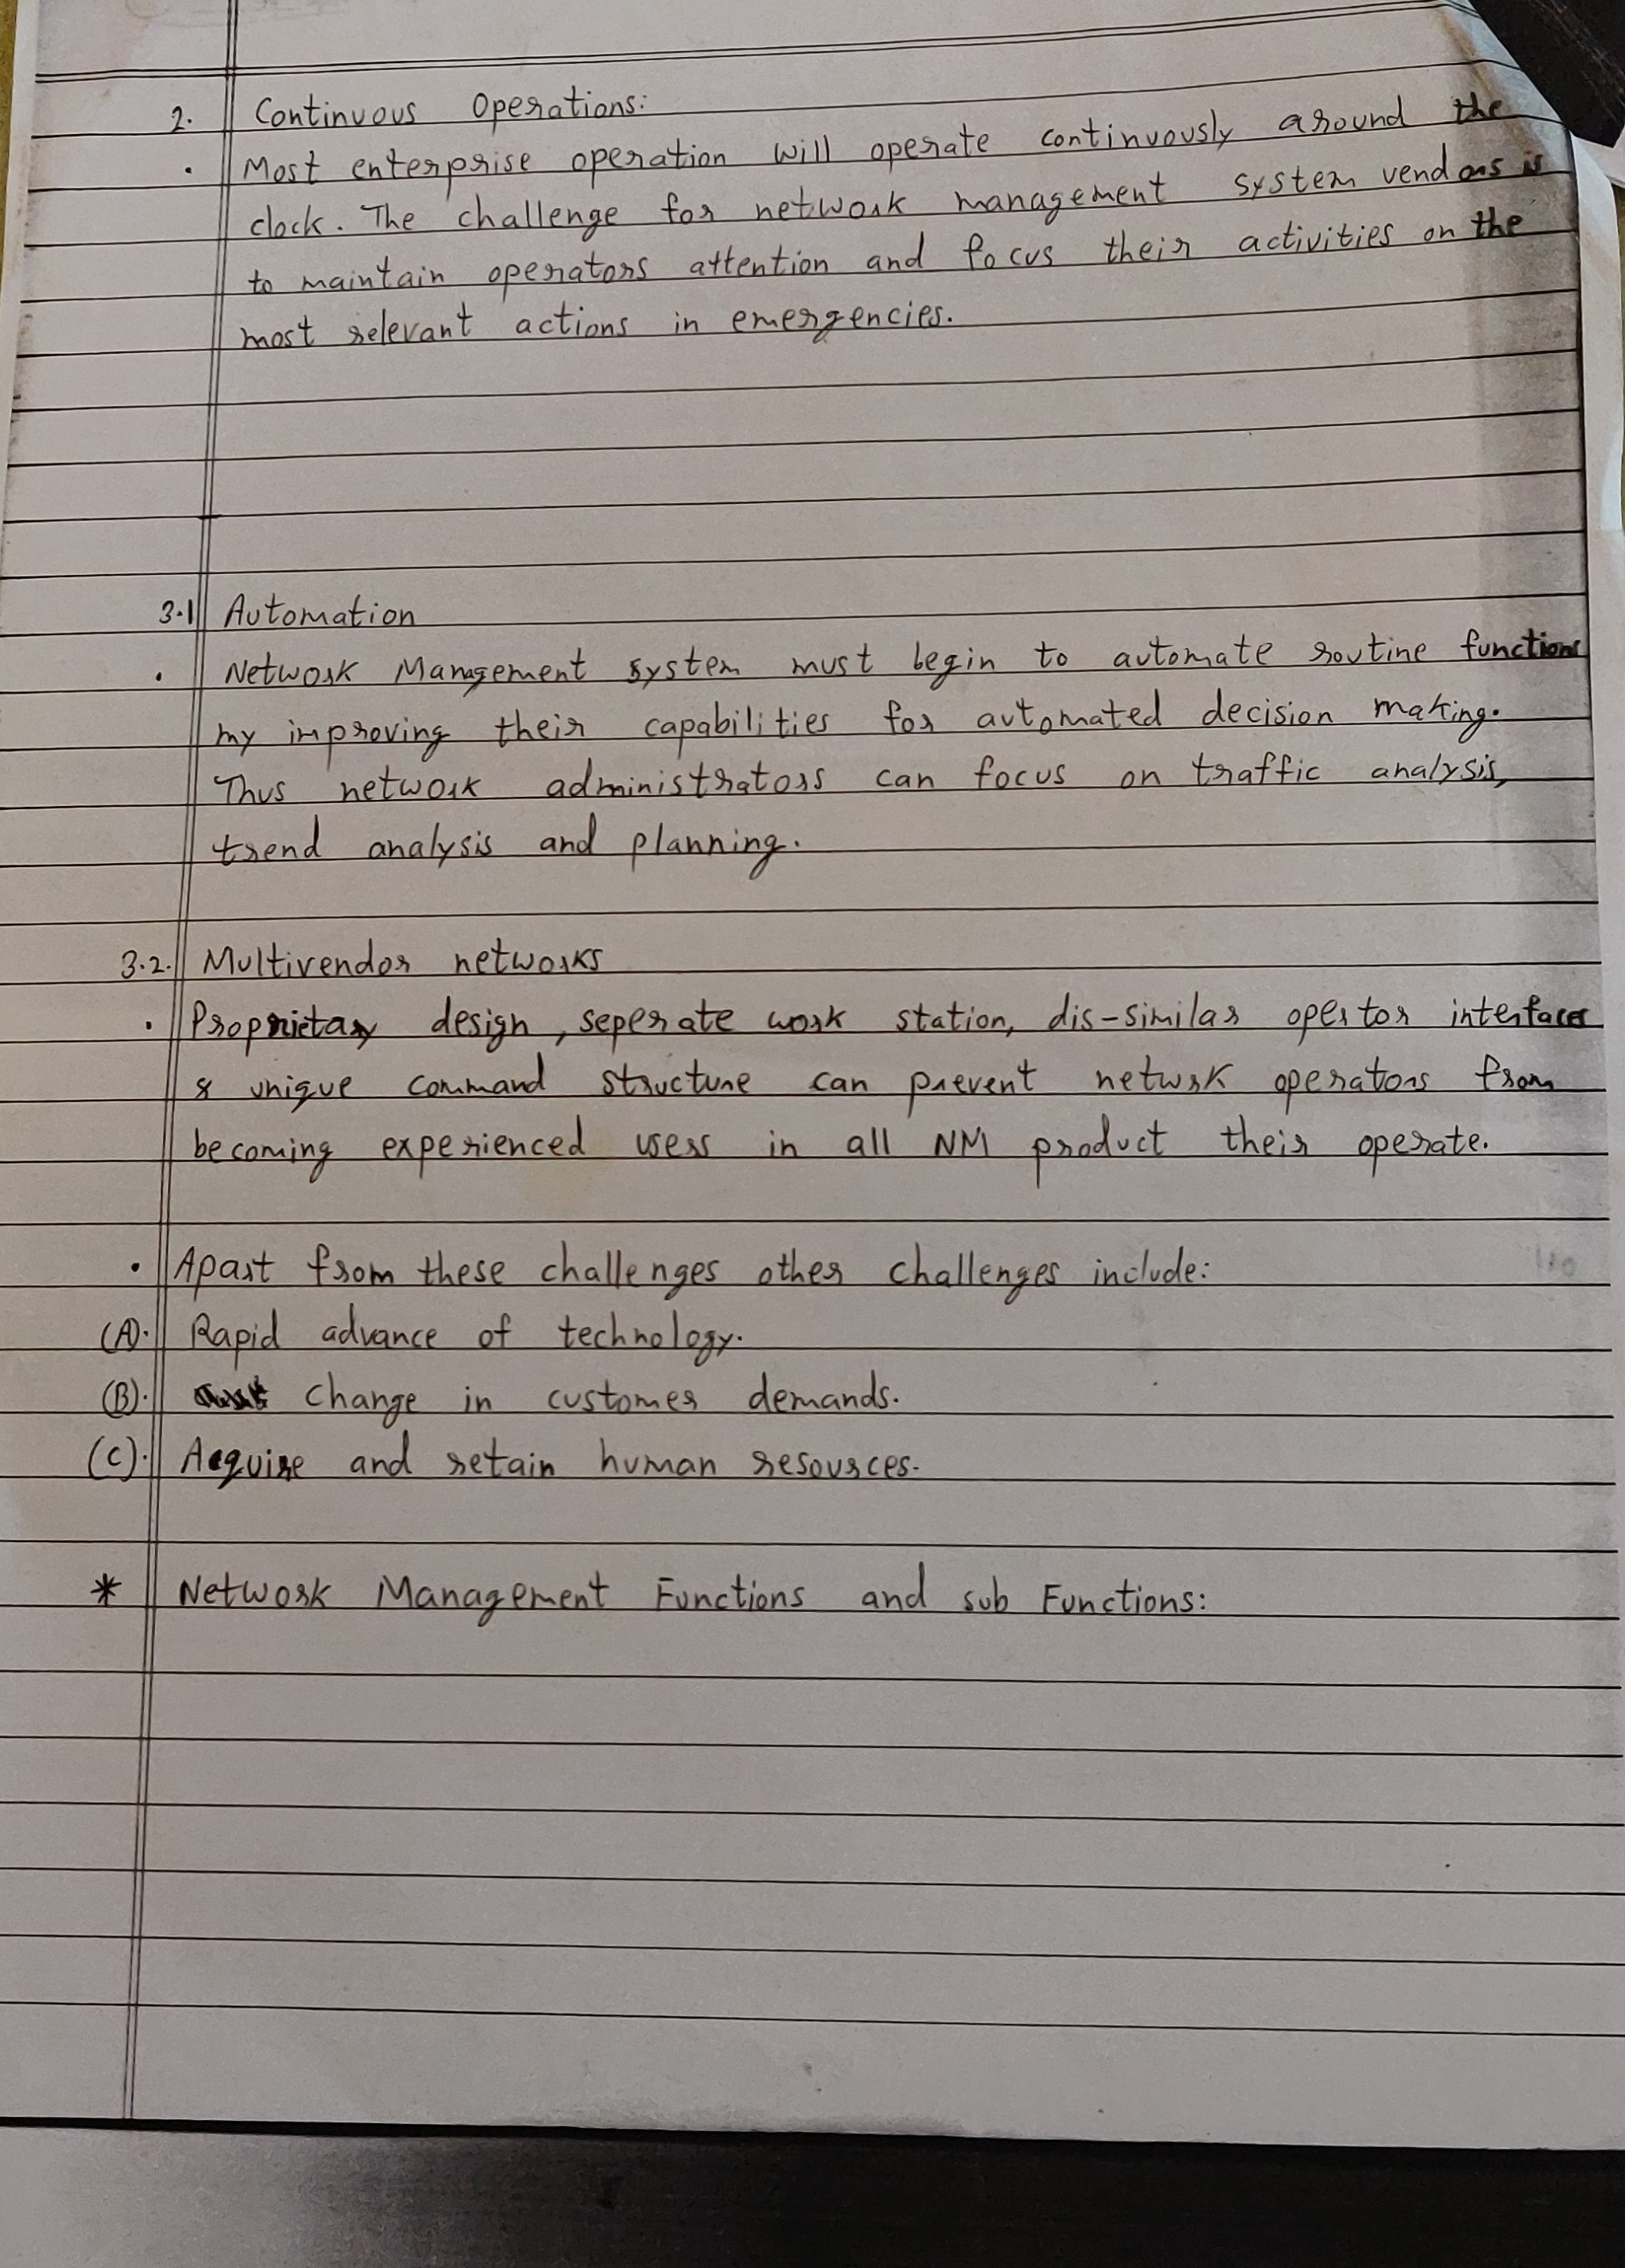 2. Continuous Operations:
• Most enterprise operation will operate continuously around the
clock. The challenge for network management system vendors is
to maintain operators attention and focus their activities on the
most relevant actions in emergencies.
3.1 Automation
• Network Management system must begin to automate routine functions
my improving their capabilities for automated decision making.
Thus network administrators can focus on traffic analysis,
trend analysis and planning.
3.2. Multivendor networks
• Proprietary design, seperate work station, dis-similar opertor interfaces
& unique command structure can prevent netwrk operators from
becoming experienced users in all NM product their operate.
• Apart from these challenges other challenges include:
(A). Rapid advance of technology.
(B). change in customer demands.
(C). Acquire and retain human resources.
* Network Management Functions and sub Functions: